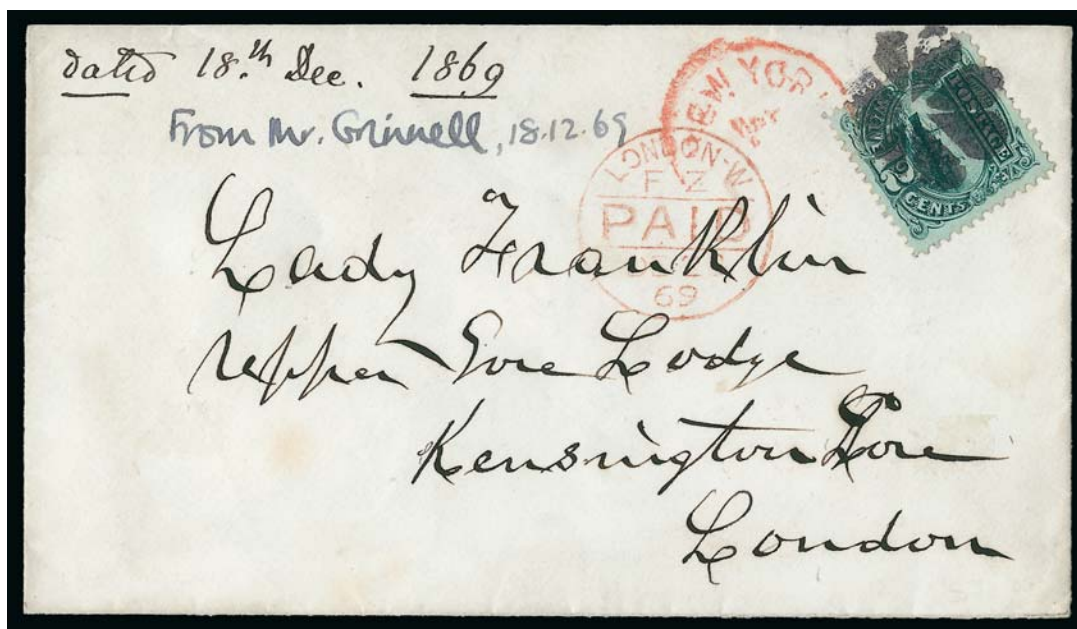 dated 18.th Dec. 1869
From Mr. Grinnell, 18.12.69
NEW YOR
LONDON-W
F Z
PAID
69
POSTAGE
TWELVE
12
CENTS
U.S.
Lady Franklin
Upper Gore Lodge
Kensington Gore
London